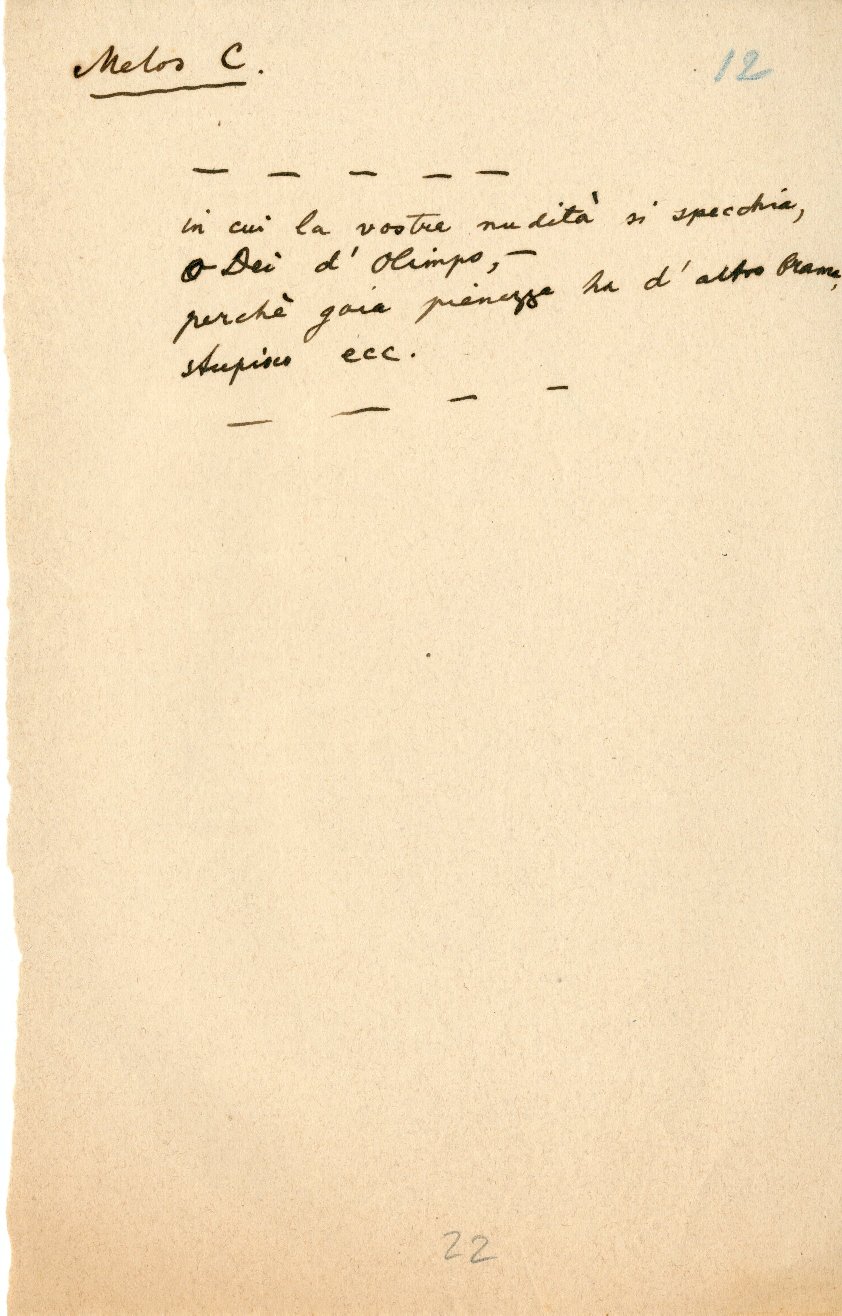 Melos C.
12
— — — — —
in cui la vostra nudità si specchia,
O Dei d'Olimpo, —
perchè gaia pienezza ha d'altro brama,
stupisco ecc.
— — — —
22